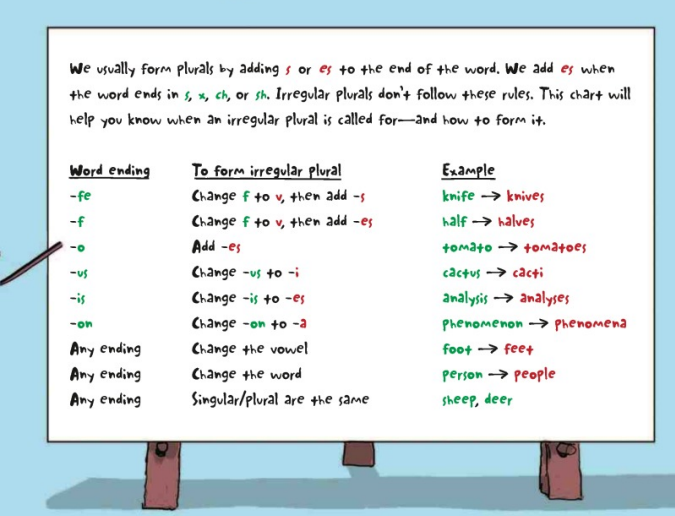 We usually form plurals by adding s or es to the end of the word. We add es when
the word ends in s, x, ch, or sh. Irregular plurals don't follow these rules. This chart will
help you know when an irregular plural is called for—and how to form it.
Word ending To form irregular plural Example
-fe Change f to v, then add -s knife → knives
-f Change f to v, then add -es half → halves
-o Add -es tomato → tomatoes
-us Change -us to -i cactus → cacti
-is Change -is to -es analysis → analyses
-on Change -on to -a phenomenon → phenomena
Any ending Change the vowel foot → feet
Any ending Change the word person → people
Any ending Singular/plural are the same sheep, deer